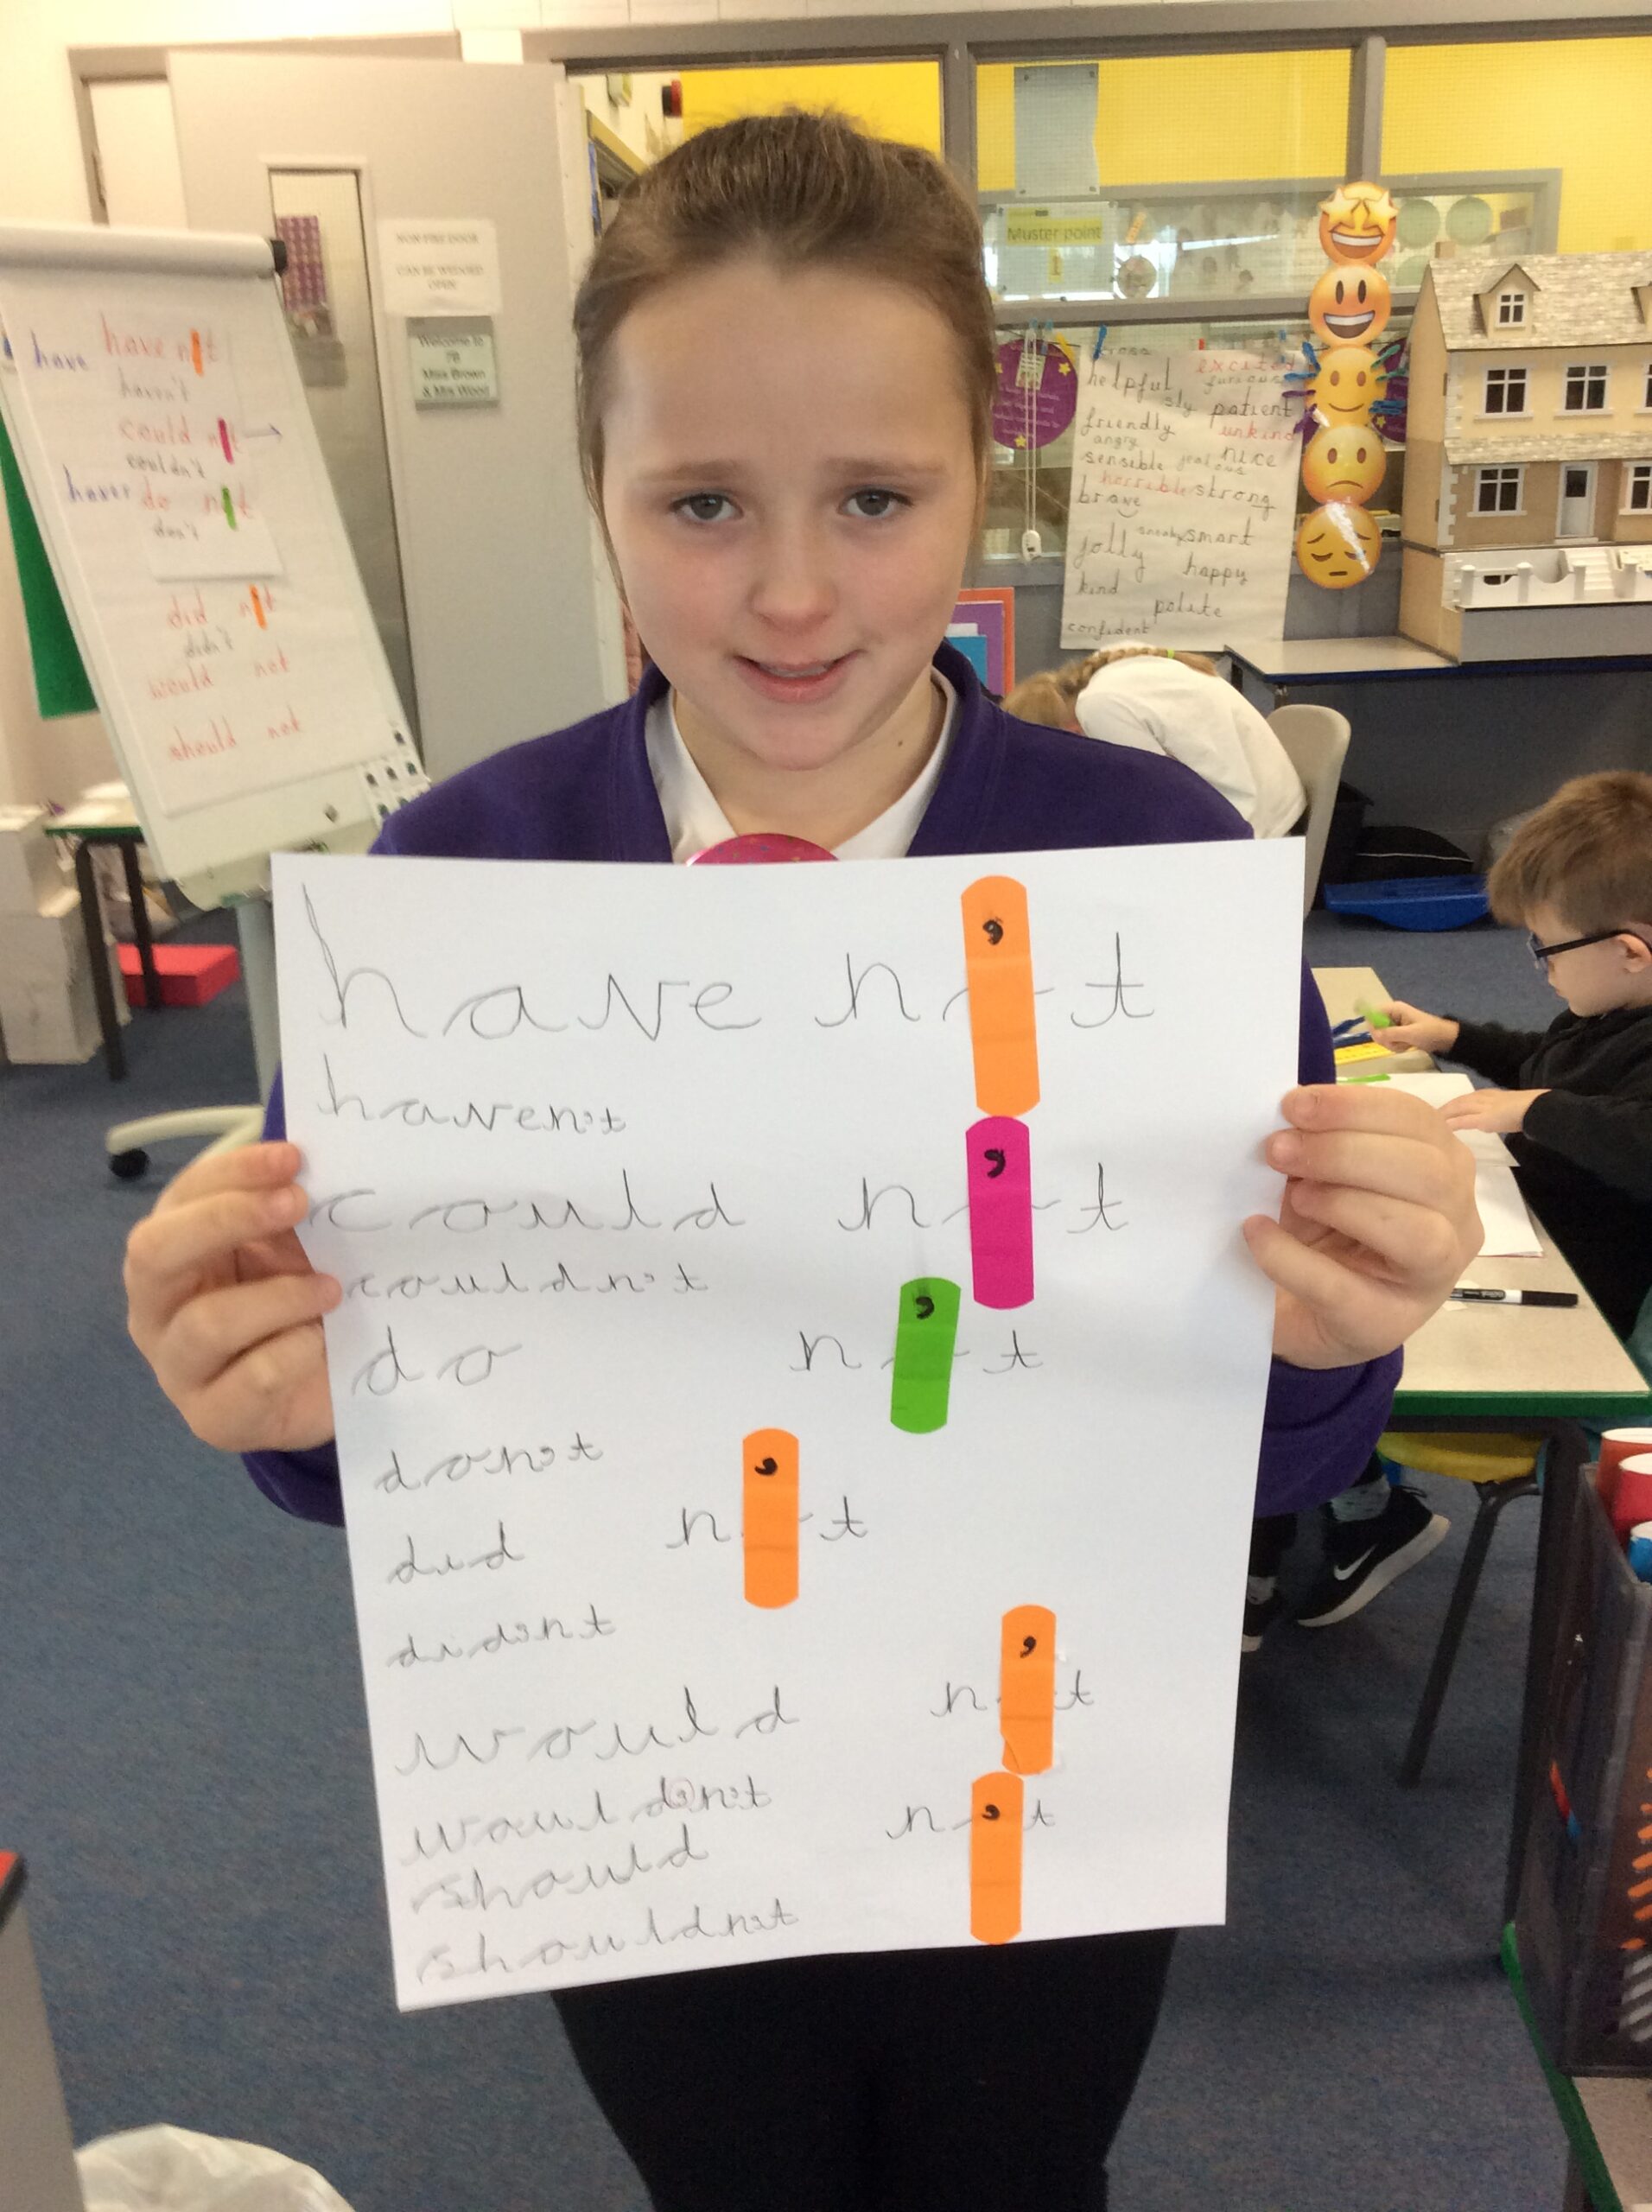 have n't
haven't
could n't
couldn't
do n't
don't
did n't
did'nt
would n't
would'n't
should n't
shouldn't
have have n t
haven't
could n t
couldn't
do n t
don't
did n t
didn't
would not
should not
NON FIRE DOOR
CAN BE WEDGED
OPEN
Welcome to
Miss Brown
& Mrs Wood
Muster point
1
cross excited
helpful furious
sly patient
friendly unkind
angry nice
sensible jealous
horrible strong
brave
sneaky smart
jolly happy
kind
polite
confident